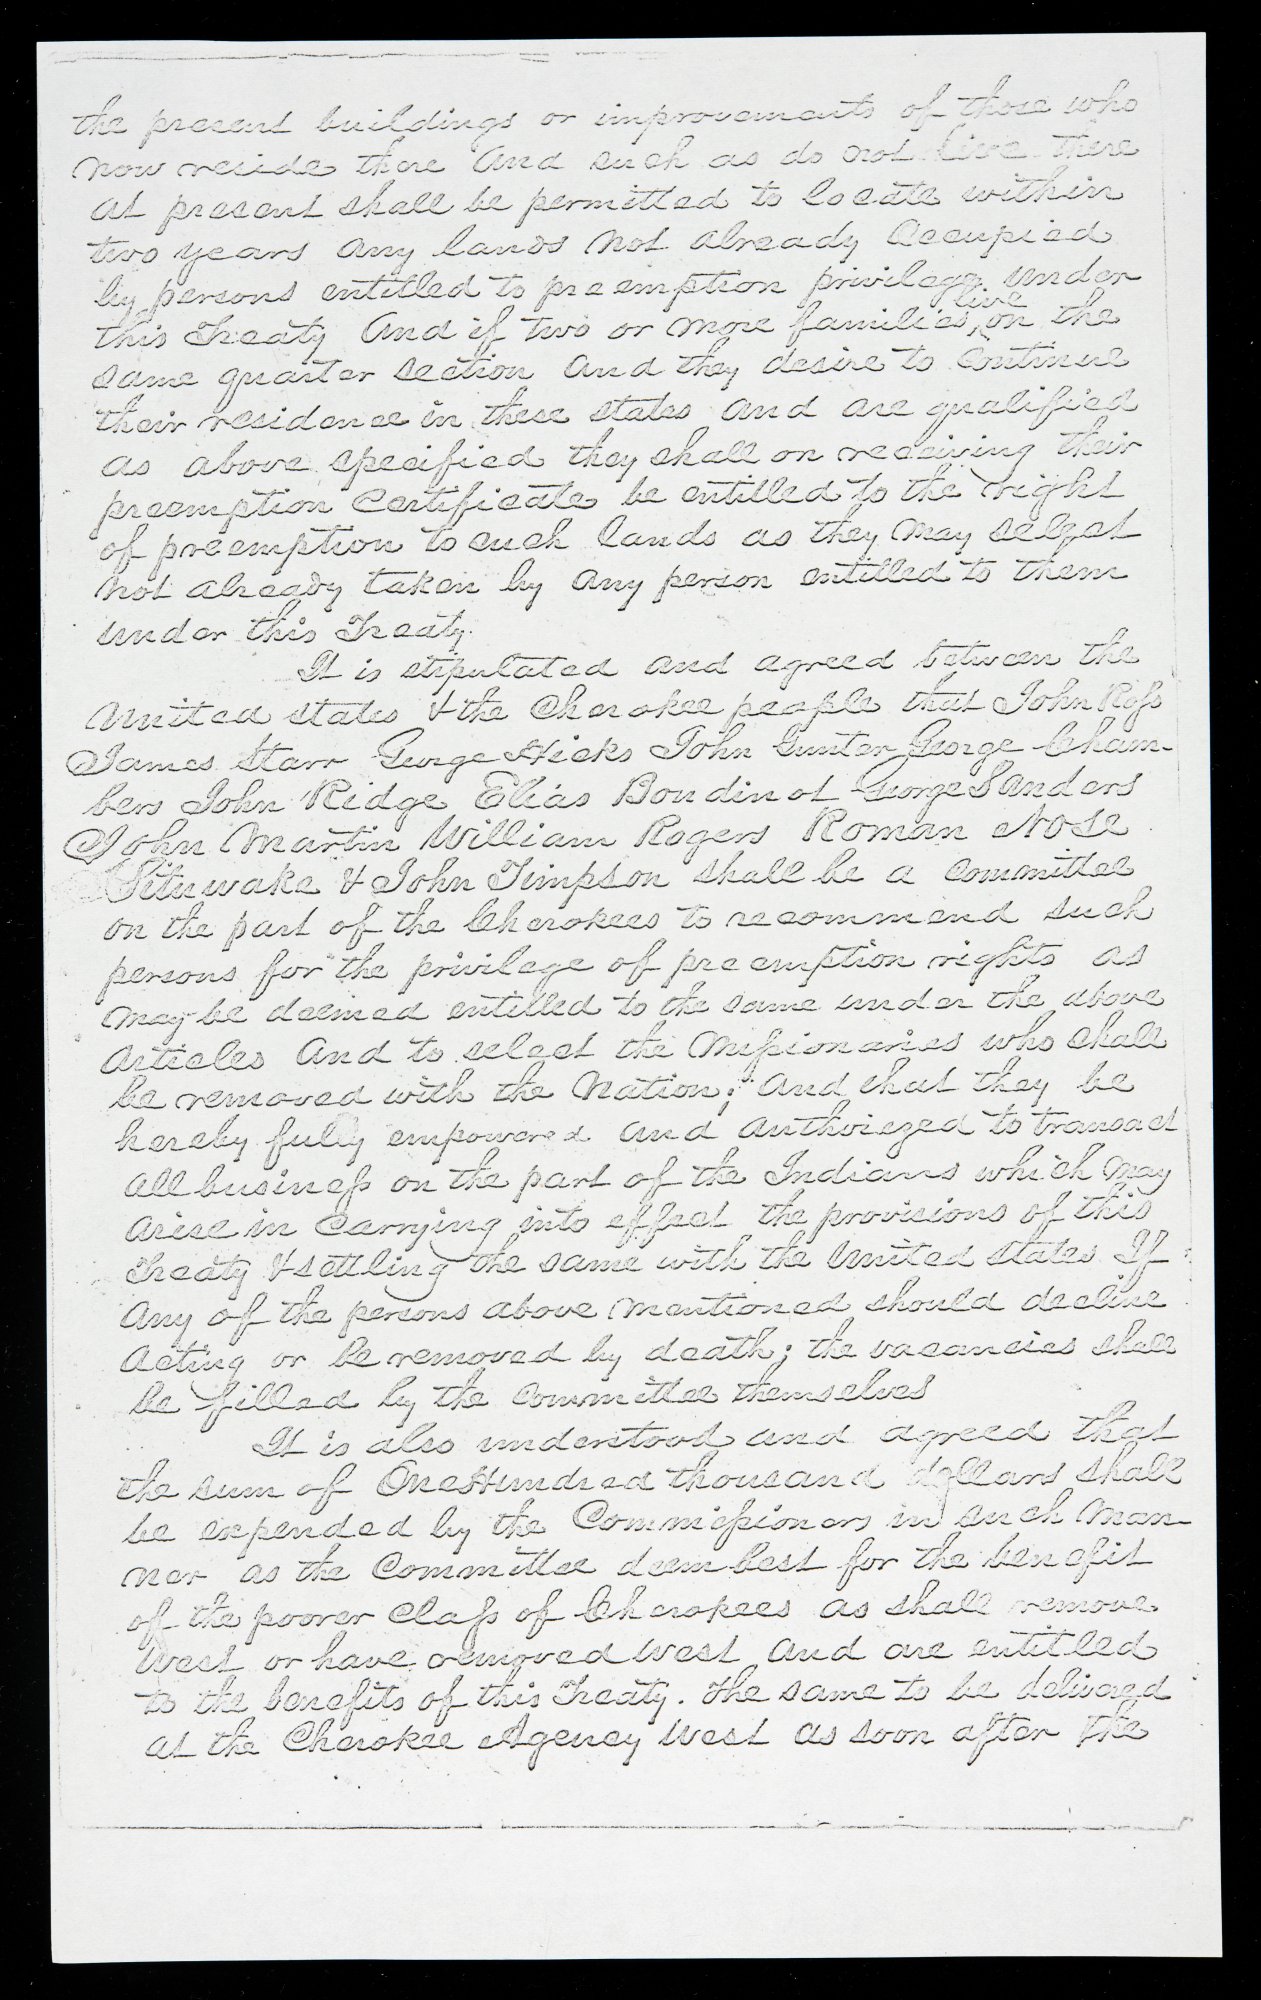 the present buildings or improvements of those who
now reside there and such as do not live there
at present shall be permitted to locate within
two years any lands not already occupied
by persons entitled to preemption privilege under
this Treaty And if two or more families live on the
same quarter section and they desire to continue
their residence in these states and are qualified
as above specified they shall on receiving their
preemption certificate be entitled to the right
of preemption to such lands as they may select
not already taken by any person entitled to them
under this Treaty.
It is stipulated and agreed between the
United states & the Cherokee people that John Ross
James Starr George Hicks John Gunter George Cham-
bers John Ridge Elias Boudinot George Sanders
John Martin William Rogers Roman Nose
Situwake & John Timpson shall be a committee
on the part of the Cherokees to recommend such
persons for the privilege of preemption rights as
may be deemed entitled to the same under the above
articles And to select the Missionaries who shall
be removed with the Nation; And that they be
hereby fully empowered and authorized to transact
all business on the part of the Indians which may
arise in carrying into effect the provisions of this
Treaty & settling the same with the United states If
any of the persons above mentioned should decline
acting or be removed by death; the vacancies shall
be filled by the committee themselves
It is also understood and agreed that
the sum of One Hundred thousand dollars shall
be expended by the Commissioners in such man-
ner as the Committee deem best for the benefit
of the poorer class of Cherokees as shall remove
West or have removed West and are entitled
to the benefits of this Treaty. The same to be delivered
at the Cherokee Agency West as soon after the